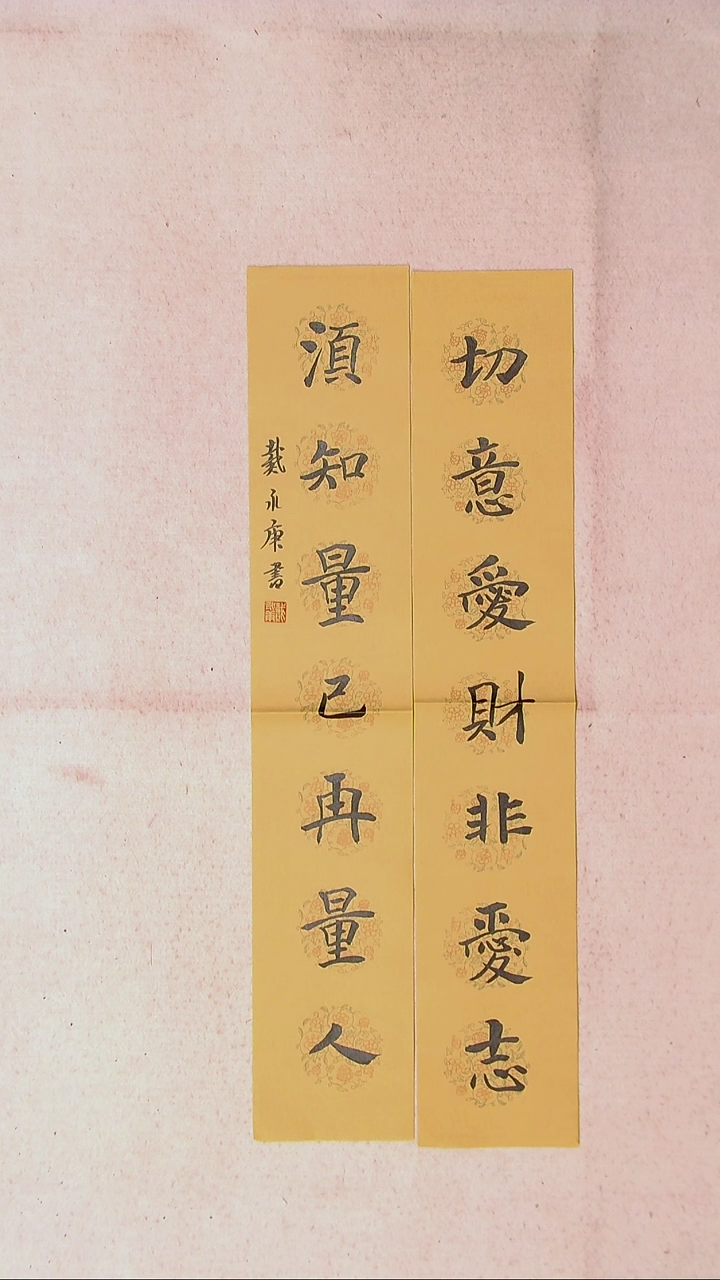 切意愛財非憂志
湏知量已再量人
戴永康書